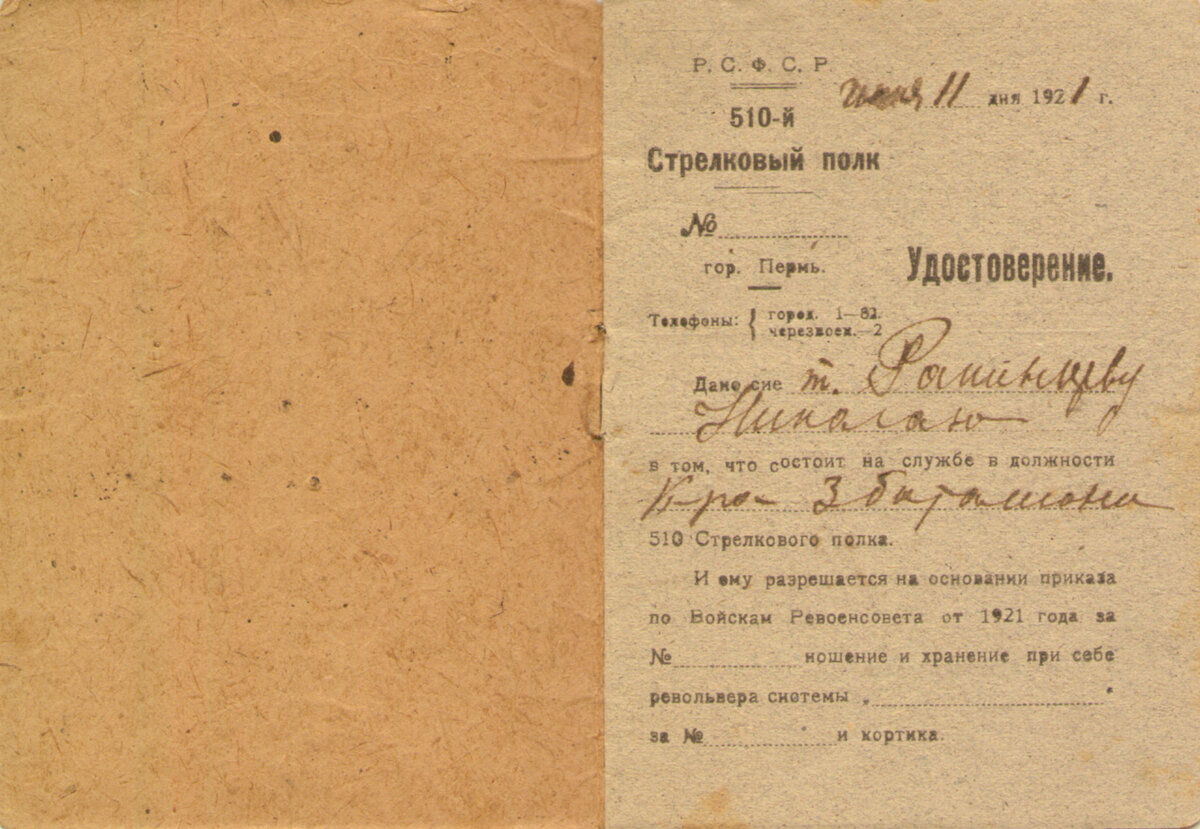 Р. С. Ф. С. Р.
11 дня 1921 г.
510-й
Стрелковый полк
№
гор. Пермь.
Удостоверение.
Телефоны: { город. 1—82.
через воен.—2
Дано сие т. Ракинцеву
Николаю
в том, что состоит на службе в должности
К-ра 3 баталиона
510 Стрелкового полка.
И ему разрешается на основании приказа
по Войскам Ревоенсовета от 1921 года за
№ ношение и хранение при себе
револьвера системы „ "
за № и кортика.